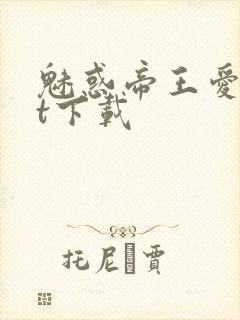 魅惑帝王愛
t下載
托尼 賈